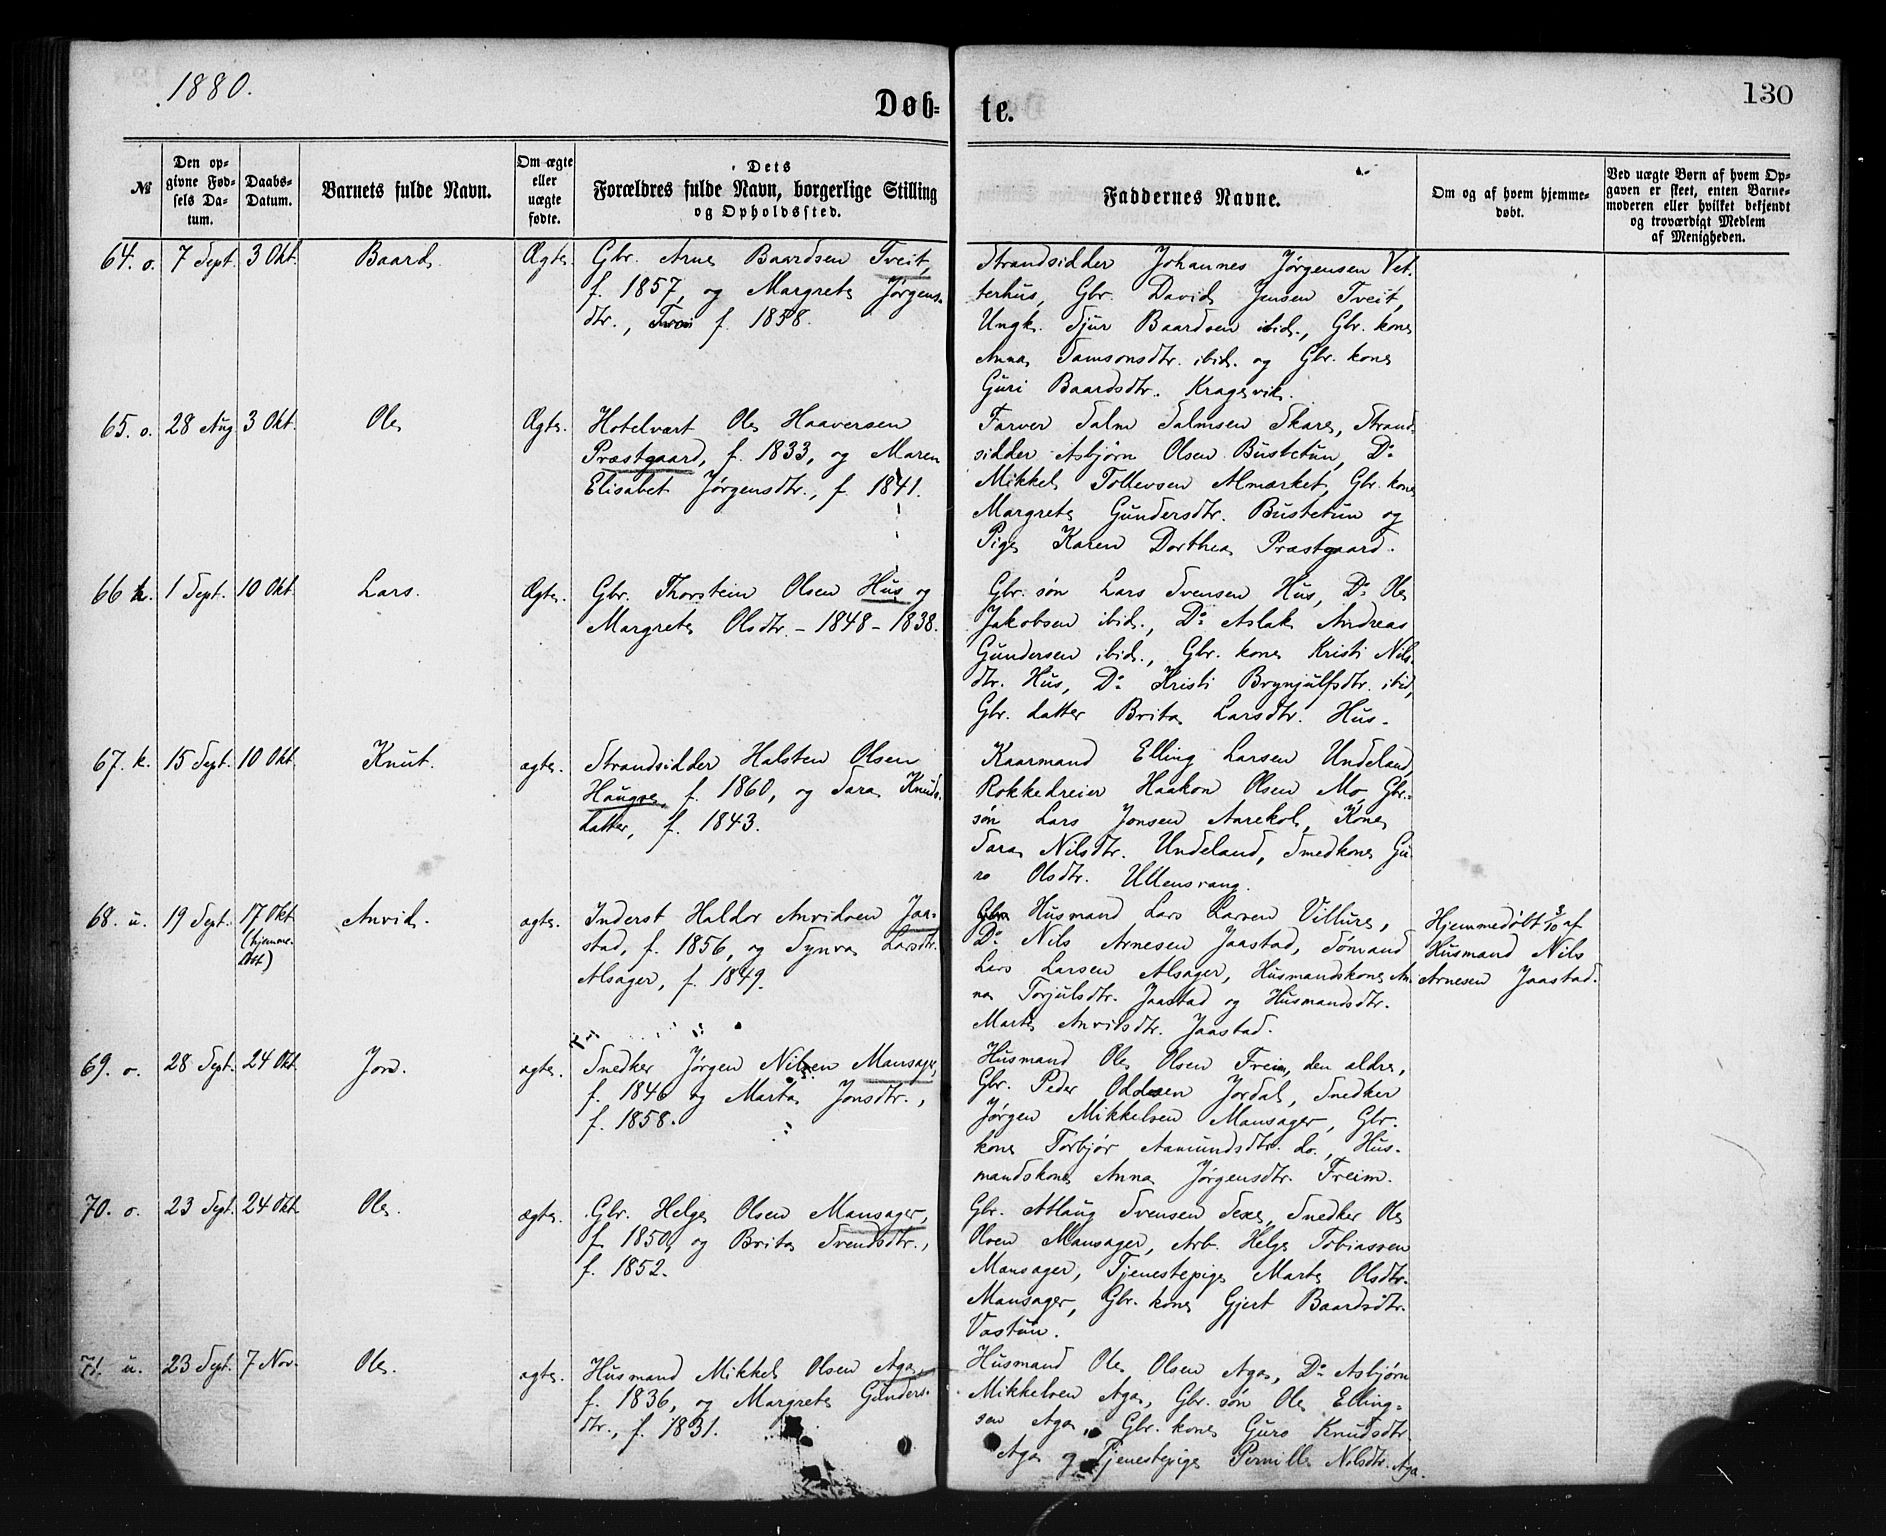 1880.
130
Døb-
te.
№
Den op-
givne Fød-
sels Da-
tum.
Daabs-
Datum.
Barnets fulde Navn.
Om ægte
eller
uægte
fødte.
Dets
Forældres fulde Navn, borgerlige Stilling
og Opholdssted.
Faddernes Navne.
Om og af hvem hjemme-
døbt.
Ved uægte Børn af hvem Op-
gaven er skeet, enten Barne-
moderen eller hvilket bekjendt
og troværdigt Medlem
af Menigheden.
64. o. 7 Sept. 3 Okt. Baard. Ægte.
Gbr. Arne Baardsen Tveit,
f. 1857, og Margrete Jørgens-
dtr., f. 1858.
Strandsidder Johannes Jørgensen Vet-
terhus, Gbr. David Jensen Tveit,
Ungk. Sjur Baardsen ibid., Gbr. kone
Anna Samsonsdtr. ibid. og Gbr. kone
Guri Baardsdtr. Kragevik.
65. o. 28 Aug. 3 Okt. Ole Ægte.
Hotelvært Ole Haaversen
Præstgaard, f. 1833, og Maren
Elisabet Jørgensdtr., f. 1841.
Farver Salm Salmsen Skare, Strand-
sidder Asbjørn Olsen Bustetun, Do
Mikkel Tollevsen Almærket, Gbr. kone
Margrete Gundersdtr. Bustetun og
Pige Karen Dorthea Præstgaard.
66 k. 1 Sept. 10 Okt. Lars. Ægte.
Gbr. Thorstein Olsen Hus og
Margrete Olsdtr. - 1848 - 1838.
Gbr. søn Lars Svensen Hus, Do Ole
Jakobsen ibid., Do Aslak Andreas
Gundersen ibid., Gbr. kone Kristi Nils-
dtr. Hus, Do Kristi Brynjulfsdtr. ibid,
Gbr. datter Brita Larsdtr. Hus.
67. k. 15 Sept. 10 Okt. Knut. ægte.
Strandsidder Halsten Olsen
Haugse, f. 1860, og Sara Knuds-
datter, f. 1843.
Kaarmand Elling Larsen Undeland,
Rokkedreier Haakon Olsen Mo, Gbr.-
søn Lars Jonsen Aarekol, Kone
Sara Nilsdtr. Undeland, Smedkone Gu-
ro Olsdtr. Ullensvang.
68. u. 19 Sept. 17 Okt. Arvid. ægte.
(hjemme-
døbt)
Inderst Haldor Arvidsen Jaa-
stad, f. 1856, og Synva Larsdtr.
Alsager, f. 1849.
Gbr. Husmand Lars Larsen Villure,
Do Nils Arnesen Jaastad, Sømand
Lars Larsen Alsager, Husmandskone An-
na Torjulsdtr. Jaastad og Husmandsdtr.
Marte Arvidsdtr. Jaastad.
Hjemmedøbt 3/10 af
Husmand Nils
Arnesen Jaastad.
69. o. 28 Sept. 24 Okt. Jon. ægte.
Snedker Jørgen Nilsen Mansager,
f. 1846 og Marta Jonsdtr.,
f. 1858.
Husmand Ole Olsen Freim, den ældre,
Gbr. Peder Oddsen Jordal, Snedker
Jørgen Mikkelsen Mansager, Gbr.
kone Torbjør Aamundsdtr. do., Hus-
mandskone Anna Jørgensdtr. Freim.
70. o. 23 Sept. 24 Okt. Ole. ægte.
Gbr. Helge Olsen Mansager,
f. 1850, og Brita Svendsdtr.,
f. 1852.
Gbr. Atlaug Svensen Sexe, Snedker Ole
Olsen Mansager, Arb. Helge Tobiassen
Mansager, Tjenestepige Marte Olsdtr.
Mansager, Gbr. kone Gjert Baardsdtr.
Vastun.
71. u. 23 Sept. 7 Nov. Ole. ægte.
Husmand Mikkel Olsen Aga,
f. 1836, og Margrete Gunders-
dtr., f. 1831.
Husmand Ole Olsen Aga, Do Asbjørn
Mikkelsen Aga, Gbr. søn Ole Elling-
sen Aga, Gbr. kone Guro Knudsdtr.
Aga og Tjenestepige Pernille Nilsdtr. Aga.